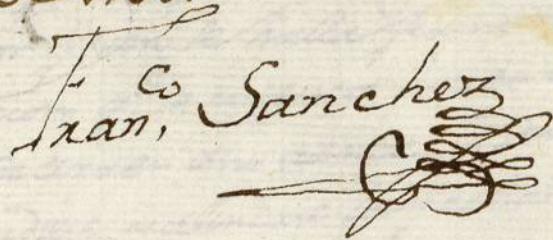 Fran,co Sanchez